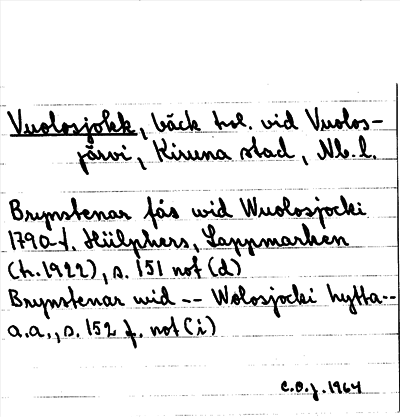 Vuolosjokk, bäck hol. vid Vuolos-
järvi, Kiruna stad, Nb. l.
Brynstenar fås wid Wuolosjocki
1790-t. Hülphers, Lappmarken
(tr. 1922), s. 151 not (d)
Brynstenar wid -- Wolosjocki hytta--
a.a., s. 152 f. not (i)
C.O.J. 1964